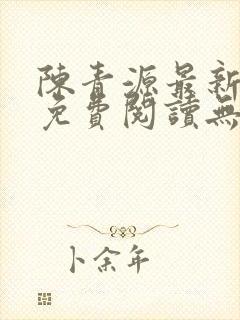 陳青源最新
免費閱讀無
卜余年